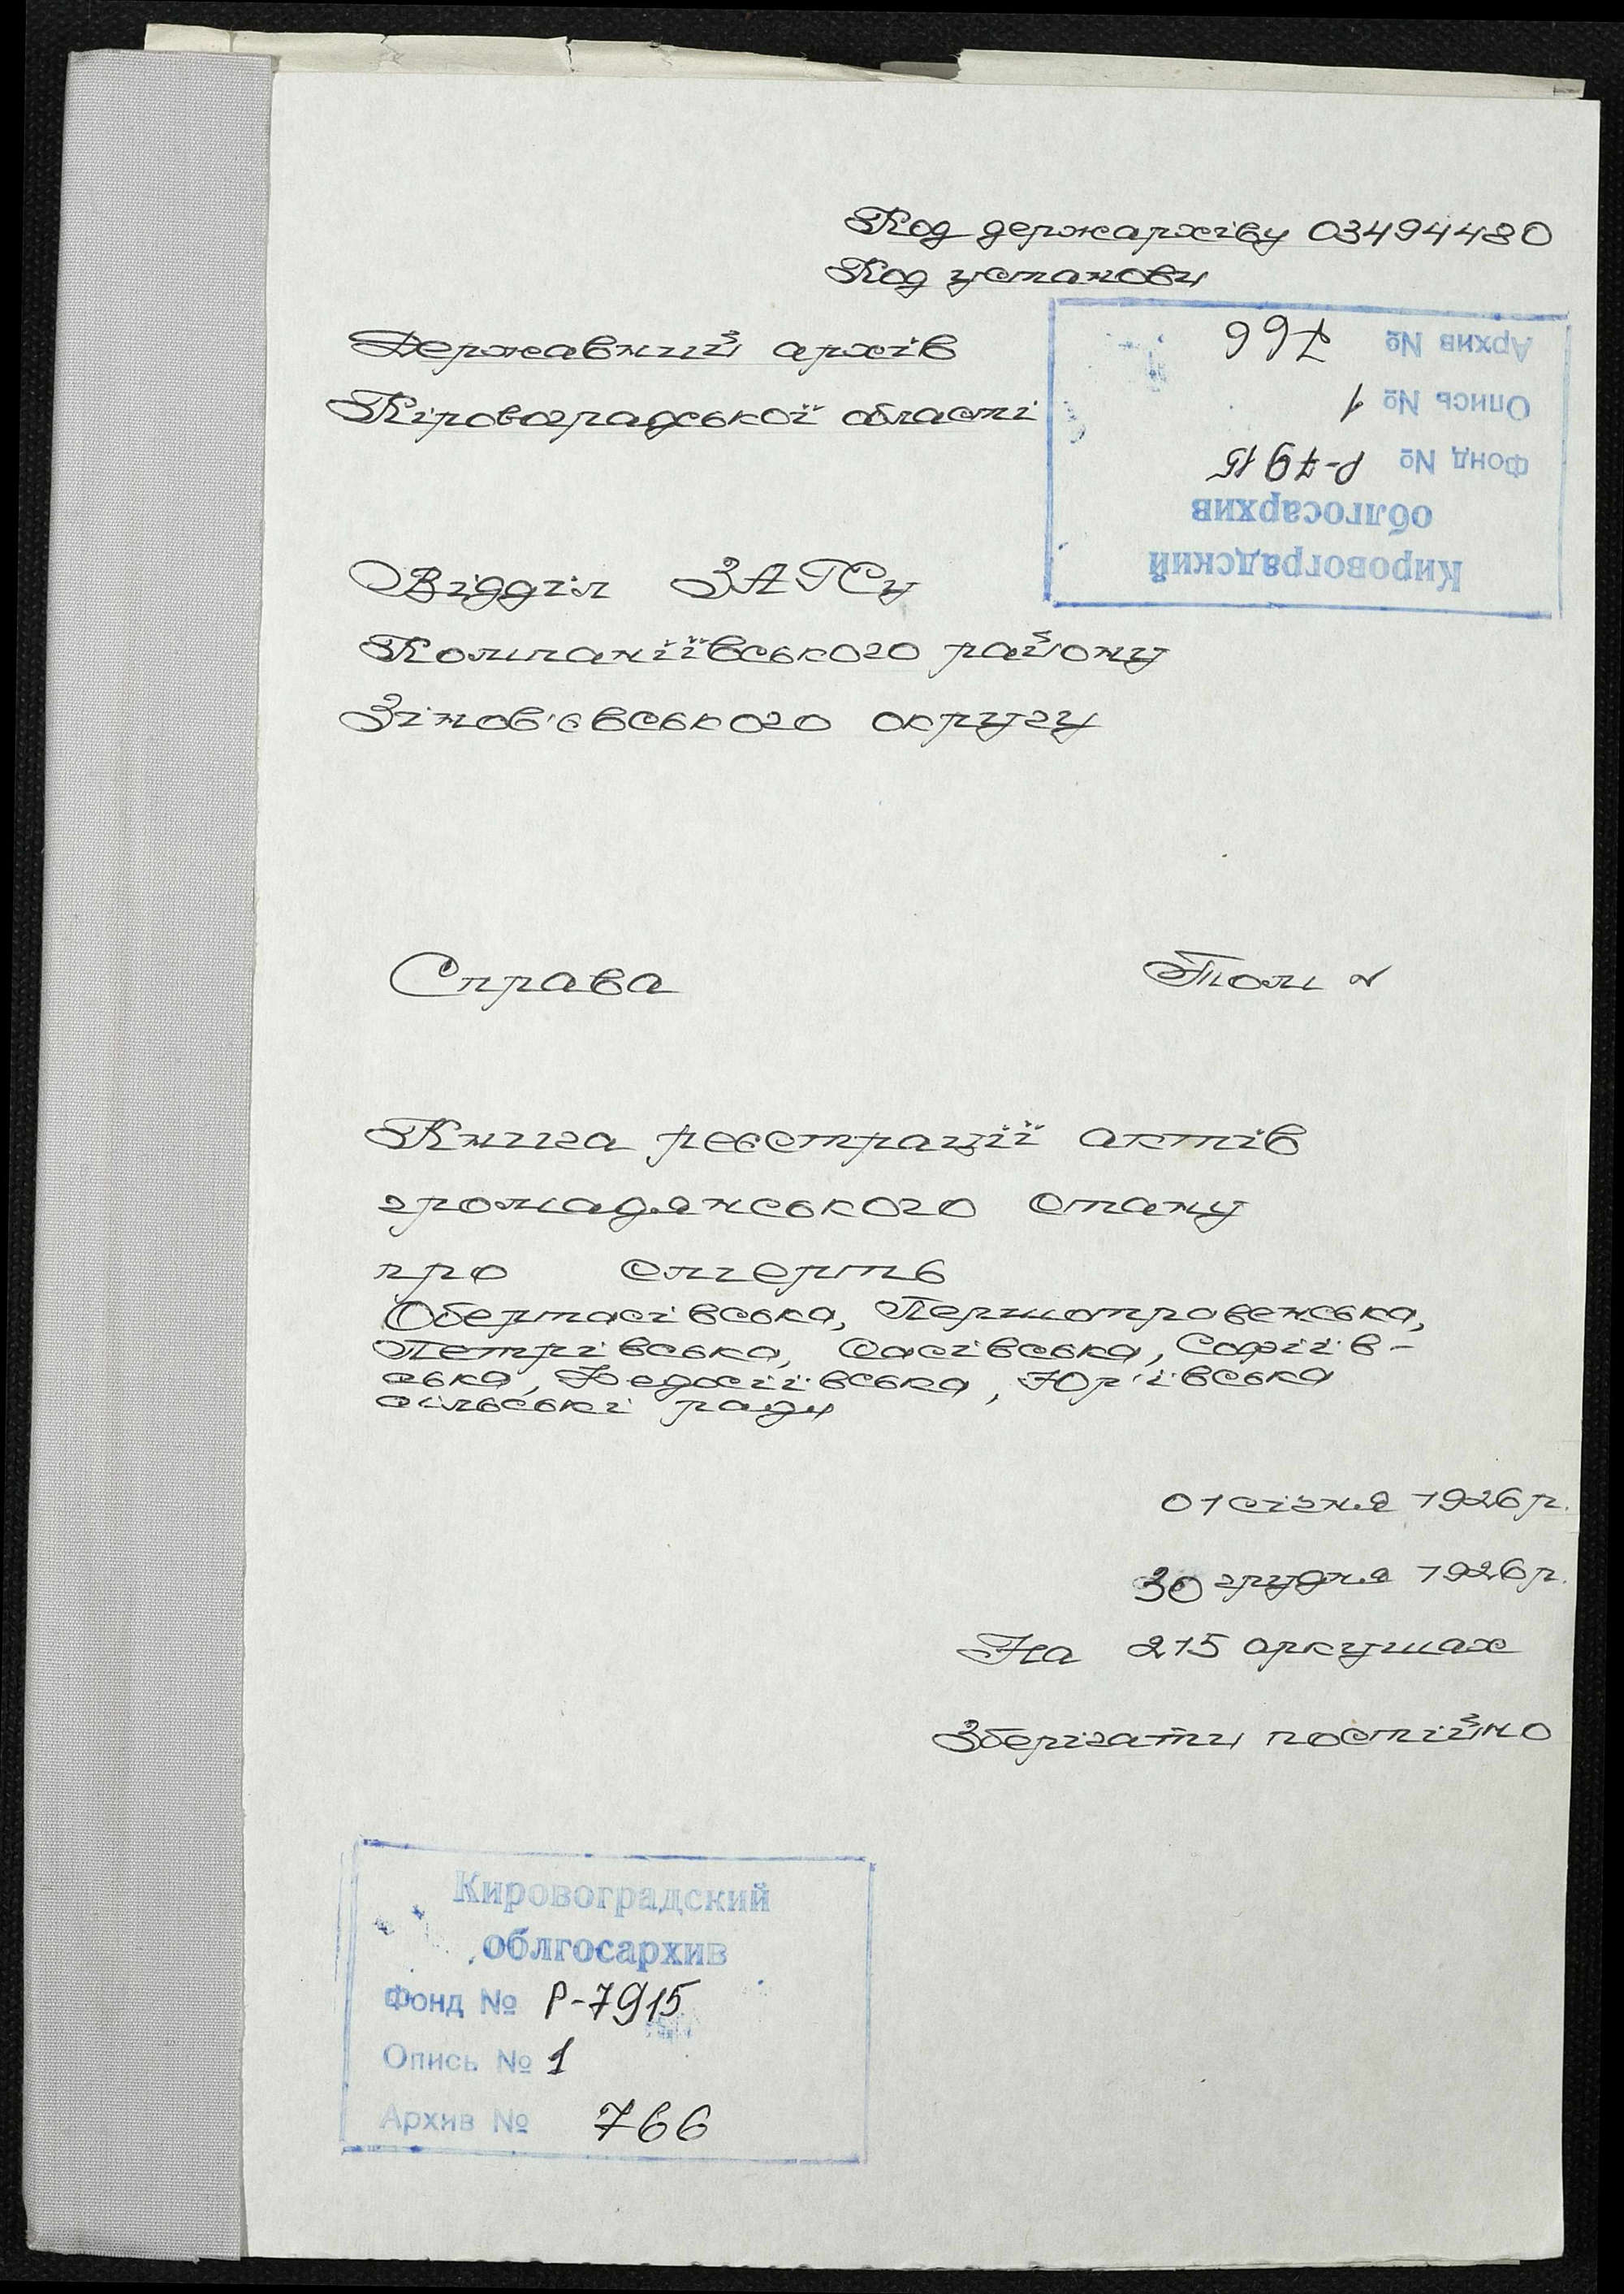 Код держархіву 03494480
Код установи
Державний архів
Кіровоградської області
Кировоградский
облгосархив
Фонд № Р-7915
Опись № 1
Архив № 766
Відділ ЗАГСу
Компаніївського району
Зінов'євського округу
Справа Том №
Книга реєстрації актів
громадянського стану
про смерть
Обертасівська, Першотравенська,
Петрівська, Сасівська, Софіїв-
ська, Федосіївська, Юр'ївська
сільські ради
01 січня 1926 р.
30 грудня 1926 р.
На 215 аркушах
Зберігати постійно
Кировоградский
облгосархив
Фонд № Р-7915
Опись № 1
Архив № 766